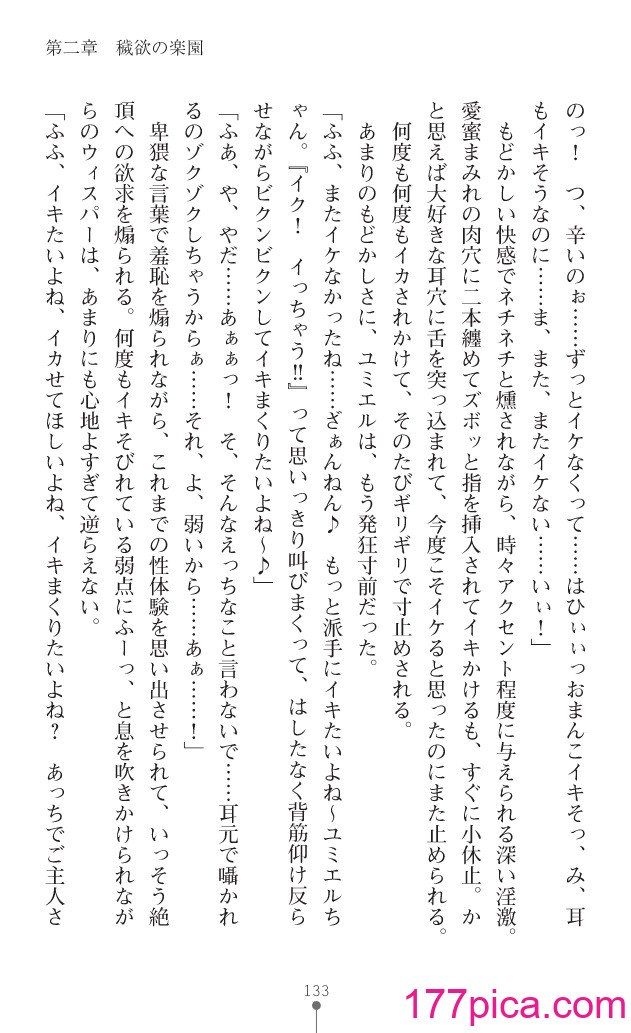 第二章　穢欲の楽園
のっ！　つ、辛いのぉ……ずっとイケなくって……はひぃぃっおまんこイキそっ、み、耳
もイキそうなのに……ま、また、またイケない……いぃ！」
　もどかしい快感でネチネチと燻されながら、時々アクセント程度に与えられる深い淫激。
愛蜜まみれの肉穴に二本纏めてズボッと指を挿入されてイキかけるも、すぐに小休止。か
と思えば大好きな耳穴に舌を突っ込まれて、今度こそイケると思ったのにまた止められる。
　何度も何度もイカされかけて、そのたびギリギリで寸止めされる。
　あまりのもどかしさに、ユミエルは、もう発狂寸前だった。
「ふふ、またイケなかったね……ざぁんねん♪　もっと派手にイキたいよね～ユミエルち
ゃん。『イク！　イっちゃう!!』って思いっきり叫びまくって、はしたなく背筋仰け反ら
せながらビクンビクンしてイキまくりたいよね～♪」
「ふあ、や、やだ……あぁぁっ！　そ、そんなえっちなこと言わないで……耳元で囁かれ
るのゾクゾクしちゃうからぁ……それ、よ、弱いから……あぁ……！」
　卑猥な言葉で羞恥を煽られながら、これまでの性体験を思い出させられて、いっそう絶
頂への欲求を煽られる。何度もイキそびれている弱点にふーっ、と息を吹きかけられなが
らのウィスパーは、あまりにも心地よすぎて逆らえない。
「ふふ、イキたいよね、イカせてほしいよね、イキまくりたいよね？　あっちでご主人さ
133
177pica.com